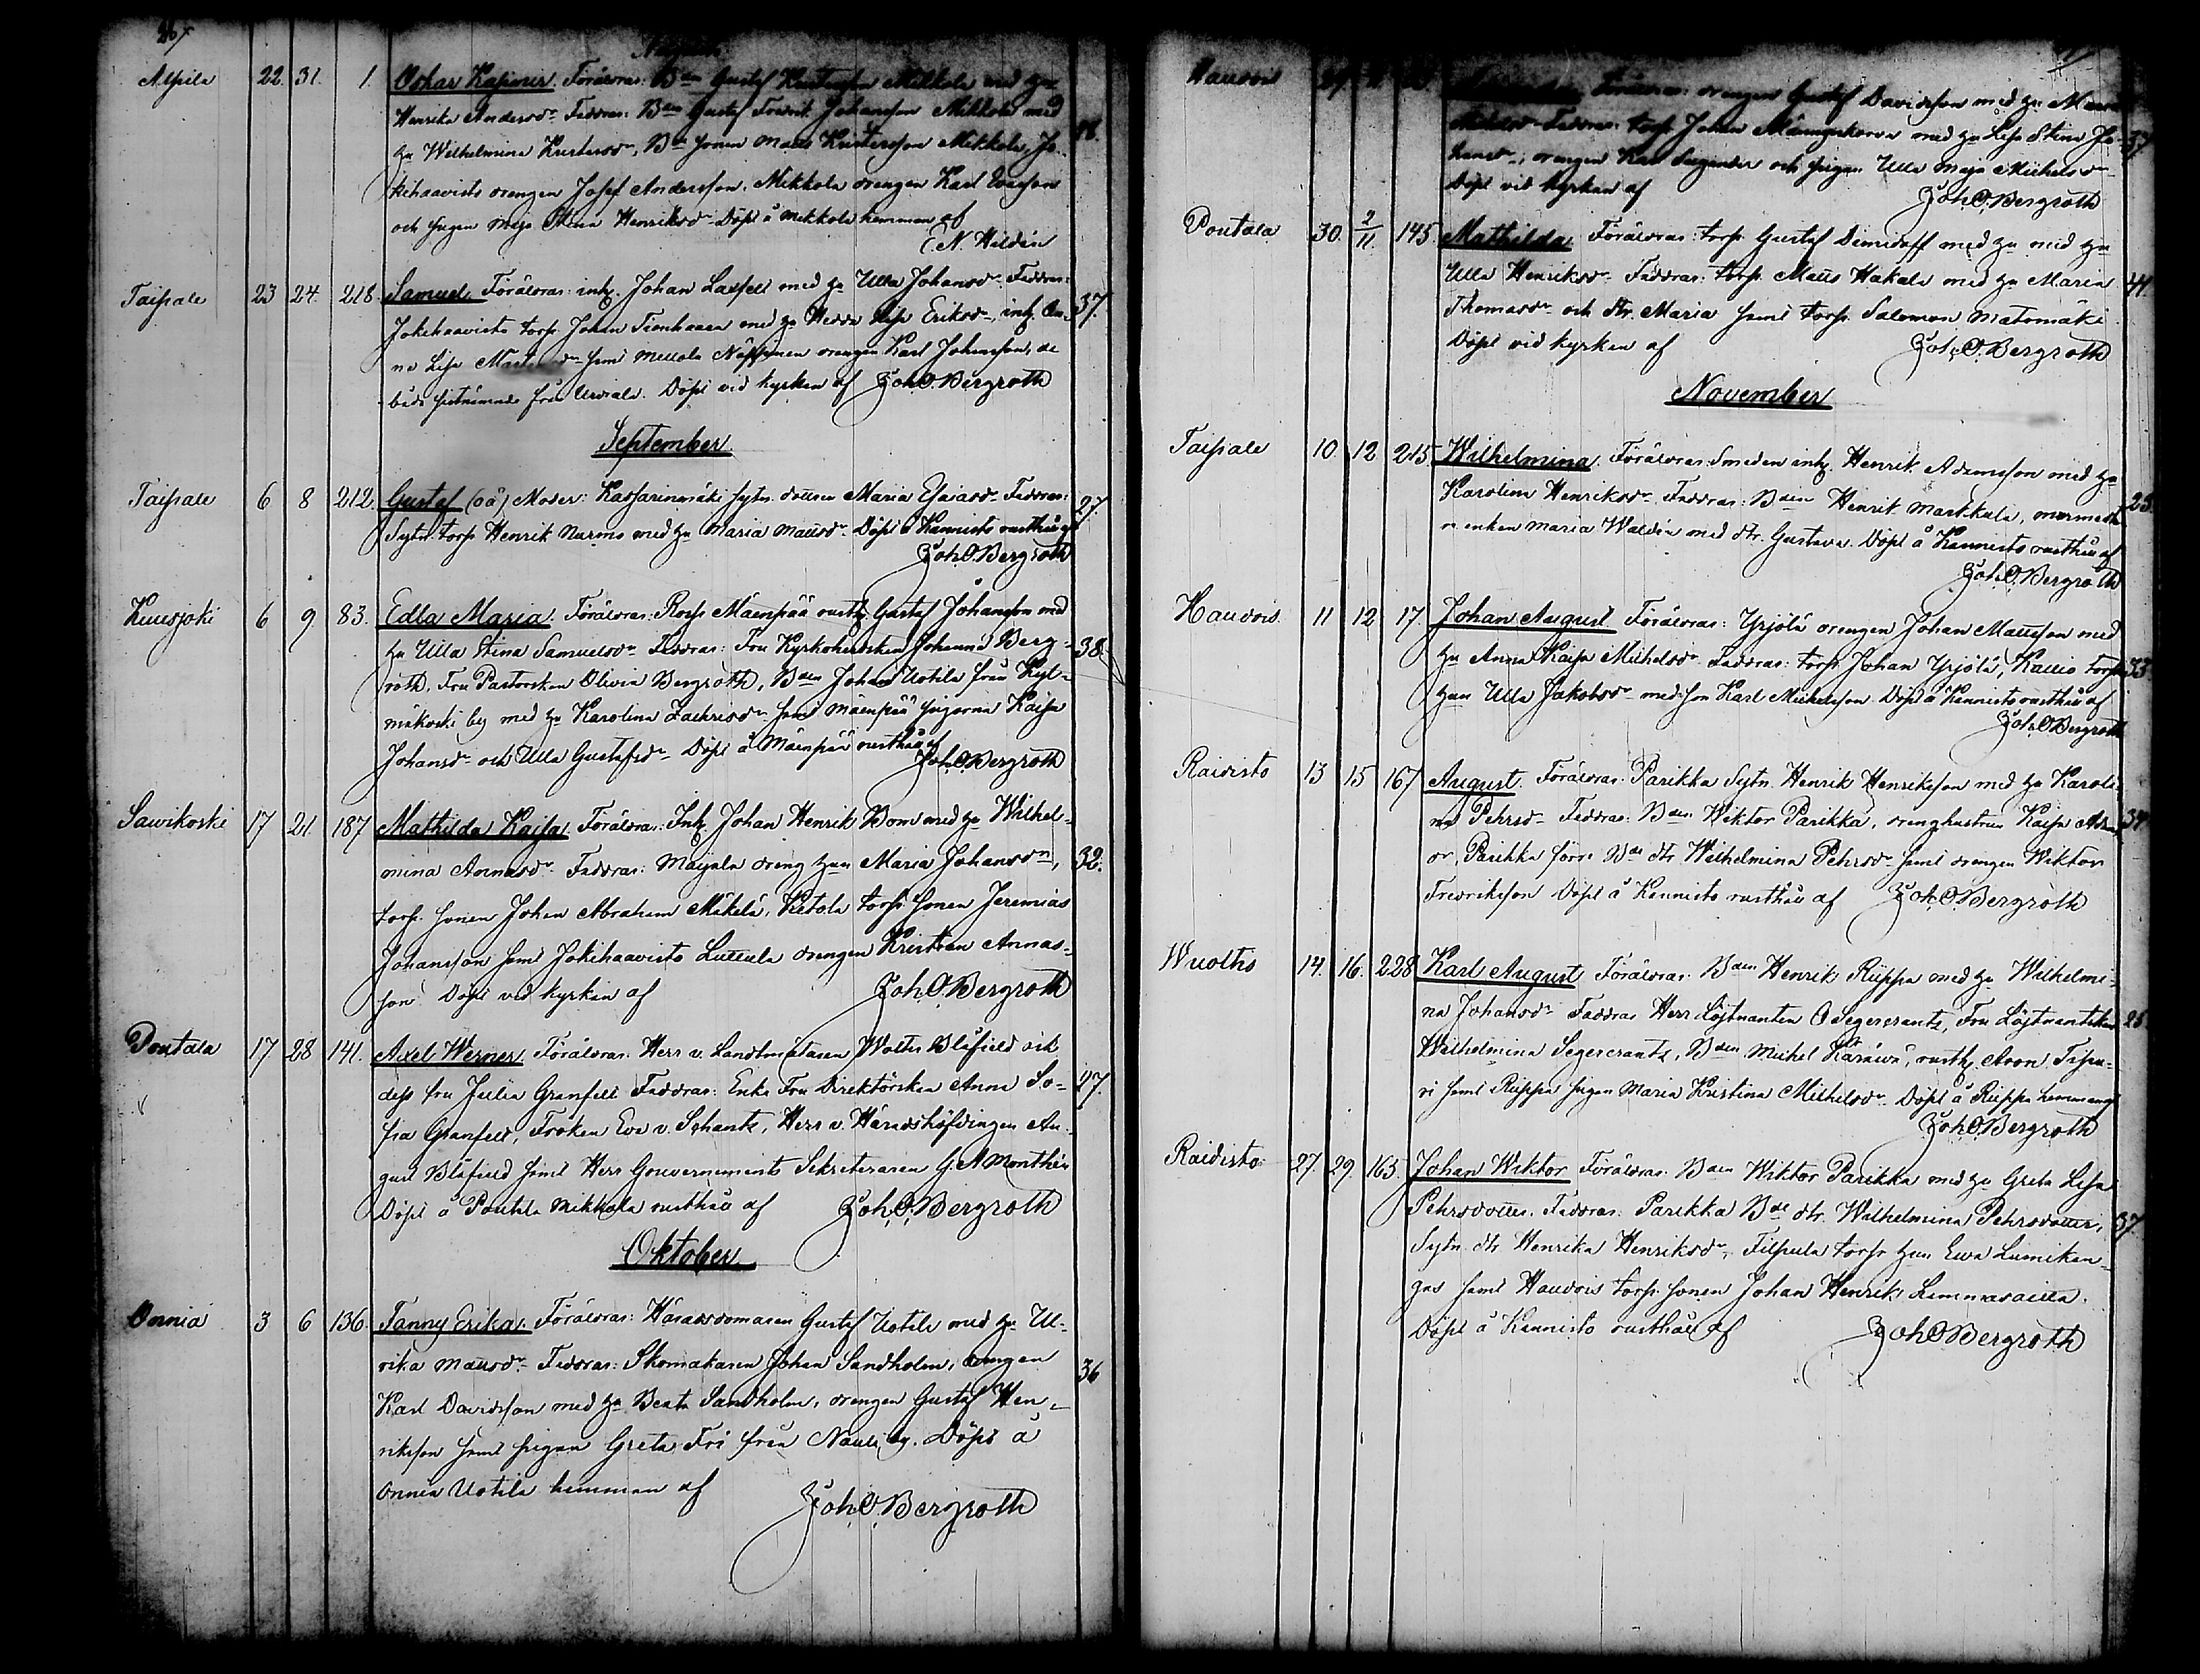 267
Alpila 22. 31. 1. Oskar Kasimir. Föräldrar: Bden Gustaf Mikkola med hu
Henrika Andersdr Faddrar: Bden Gustaf Fredrik Johansson Mikkola med
hu Wilhelmina Kustersdr, Bde sonen Matts Mikkola, Jo-
kehaavisto drengen Josef Andersson, Mikkola drengen Karl
och pigan Maja Stina Henriksdr Döpt å Mikkola hemman af
N. Hildén
Taipale 23 24. 218 Samuel. Föräldrar: inh. Johan Laxfell med hu Ulla Johansdr Faddrar: 37.
Jokehaavisto torp. Johan med hu Hedda Lisa Eriksdr, inh. An-
na Lisa samt Mellola drengen Karl Johansson, de
båda sistnämnde från Urdiala. Döpt vid kyrkan af Joh.O.Bergroth
September
Taipale 6 8 212. Gustaf (oä) Moder: sytn. dottren Maria Esaiasdr Faddrar: 27.
Sytn. torp. Henrik Nurmo med hu Maria Mattsdr Döpt å Kannisto rusthåll af
Joh.O.Bergroth
Kuusjoki 6 9 83. Edla Maria. Föräldrar: Mäenpää rusth. Gustaf Johansson med
hu Ulla Stina Samuelsdr Faddrar: Fru Kyrkoherdskan Johanna Berg- 38.
roth, Fru Pastorskan Olivia Bergroth, Bden Johan Uotila från Kyl-
mäkoski by med hu Karolina Zachrisdr samt Mäenpää pigorna Kajsa
Johansdr och Ulla Gustafsdr Döpt å Mäenpää rusthåll af
Joh.O.Bergroth
Sawikoski 17 21. 187 Mathilda Kajsa. Föräldrar: Inh. Johan Henrik Bom med hu Wilhel-
mina Annasdr Faddrar: Maijala dreng hun Maria Johansdr, 32.
torp. sonen Johan Abraham Mäkelä, Ketola torp. sonen Jeremias
Johansson samt Jokehaavisto Luttula drengen Kristian Annas-
son Döpt vid kyrkan af Joh.O.Bergroth
Pontala 17 28 141. Axel Werner. Föräldrar: Herr v. Landtmätaren Blåfield och
dess fru Julia Granfelt Faddrar: Enke Fru Direktörskan Anna So- 27.
fia Granfelt, Fröken Eva v. Schantz, Herr v. Häradshöfdingen Au-
gust Blåfield samt Herr Gouvernements Sekreteraren G.A Monthén
Döpt å Pontala Mikkola rusthåll af Joh.O.Bergroth
Oktober
Onnia 3 6 136. Fanny Erika. Föräldrar: Häradsdomaren Gustaf Uotila med hu Ul-
rika Mattsdr Faddrar: Skomakaren Johan Sandholm, drengen 36
Karl Davidsson med hu Beata Sandholm, drengen Gustaf Hen-
riksson samt pigan Greta Fri från Nauli by. Döpt å
Onnia Uotila hemman af Joh.O.Bergroth
Haudois Föräldrar: drengen Gustaf Davidsson med hu
Faddrar: torp. Johan med hu Lisa Stina Jo- 37
hansdr, drengen Karl och pigan Ulla Maja Michelsdr
Döpt vid kyrkan af Joh.O.Bergroth
Pontala 30. 2/11. 145 Mathilda. Föräldrar: torp. Gustaf Dimidoff med hu med hu
Ulla Henriksdr Faddrar: torp. Matts Hakala med hu Maria 41.
Thomasdr och dtr. Maria samt torp. Salomon Matomäki
Döpt vid kyrkan af Joh.O.Bergroth
November
Taipale 10 12 215 Wilhelmina. Föräldrar: Smeden inh. Henrik Adamsson med hu
Karolina Henriksdr Faddrar: Bden Henrik Markkula, 23.
enkan Maria Waldén med dtr. Gustava. Döpt å Kannisto rusthåll af
Joh.O.Bergroth
Haudois. 11 12 17. Johan August Föräldrar: Yrjölä drengen Johan Mattsson med
hu Anna Kajsa Michelsdr Faddrar: torp. Johan Yrjölä, Kallio torp. 33
hun Ulla Jakobsdr med son Karl Michelsson Döpt å Kannisto rusthåll af
Joh.O.Bergroth
Raidisto 13 15 167 August. Föräldrar: Parikka Sytn. Henrik Henriksson med hu Karoli-
na Pehrsdr Faddrar: Bden Wiktor Parikka, dreng hustrun Kajsa 34
Parikka förre Bde dtr. Wilhelmina Pehrsdr samt drengen Wiktor
Fredriksson Döpt å Kannisto rusthåll af Joh.O.Bergroth
Wuolths 14. 16. 228 Karl August Föräldrar: Bden Henrik Riippa med hu Wilhelmi-
na Johansdr Faddrar Herr Löjtnanten O Segercrantz, Fru Löjtnantskan 25
Wilhelmina Segercrantz, Bden Michel Kärävä, rusth. Aron Tapu-
ri samt Riippa pigan Maria Kristina Michelsdr Döpt å Riippa hemman af
Joh.O.Bergroth
Raidisto. 27. 29. 165. Johan Wiktor Föräldrar: Bden Wiktor Parikka med hu Greta Lisa
Pehrsdotter. Faddrar: Parikka Bde dtr. Wilhelmina Pehrsdotter, 37.
Sytn. dtr. Henrika Henriksdr, Filpula torp. hun Ewa Lumikan-
gas samt Haudois torp. sonen Johan Henrik
Döpt å Kannisto rusthåll af Joh.O.Bergroth